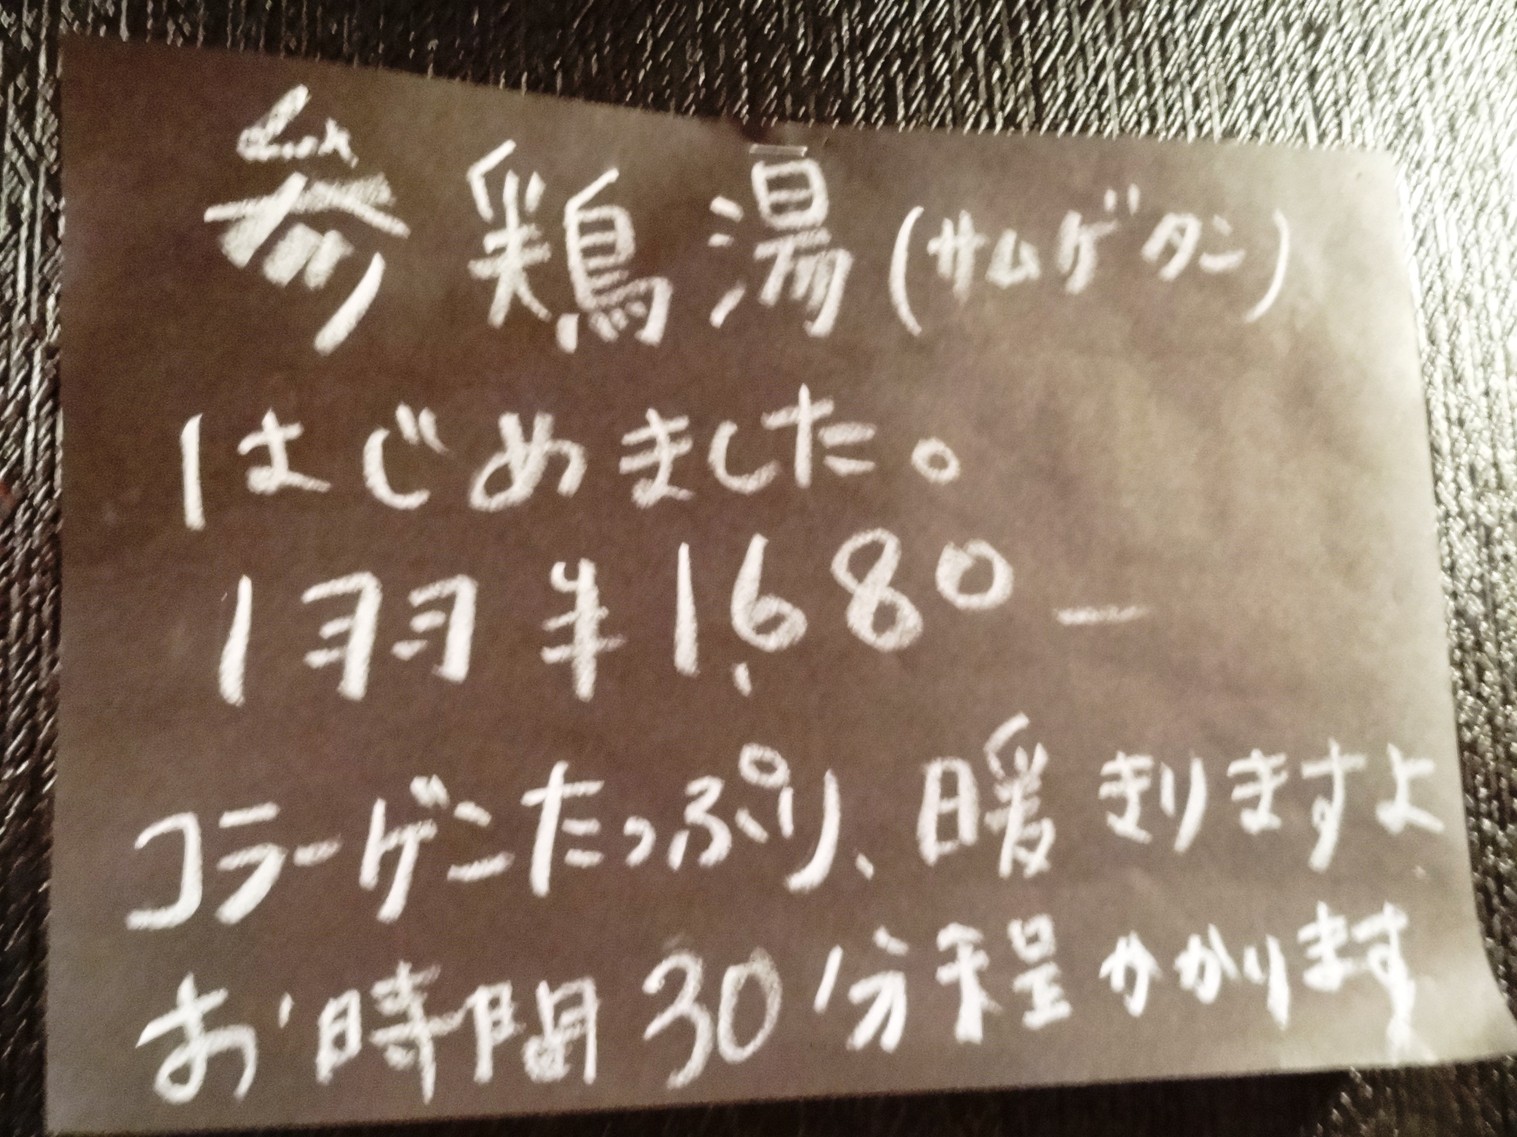 参鶏湯(サムゲタン)
はじめました。
1羽半1,680
コラーゲンたっぷり、暖まりますよ
お時間30分程かかります